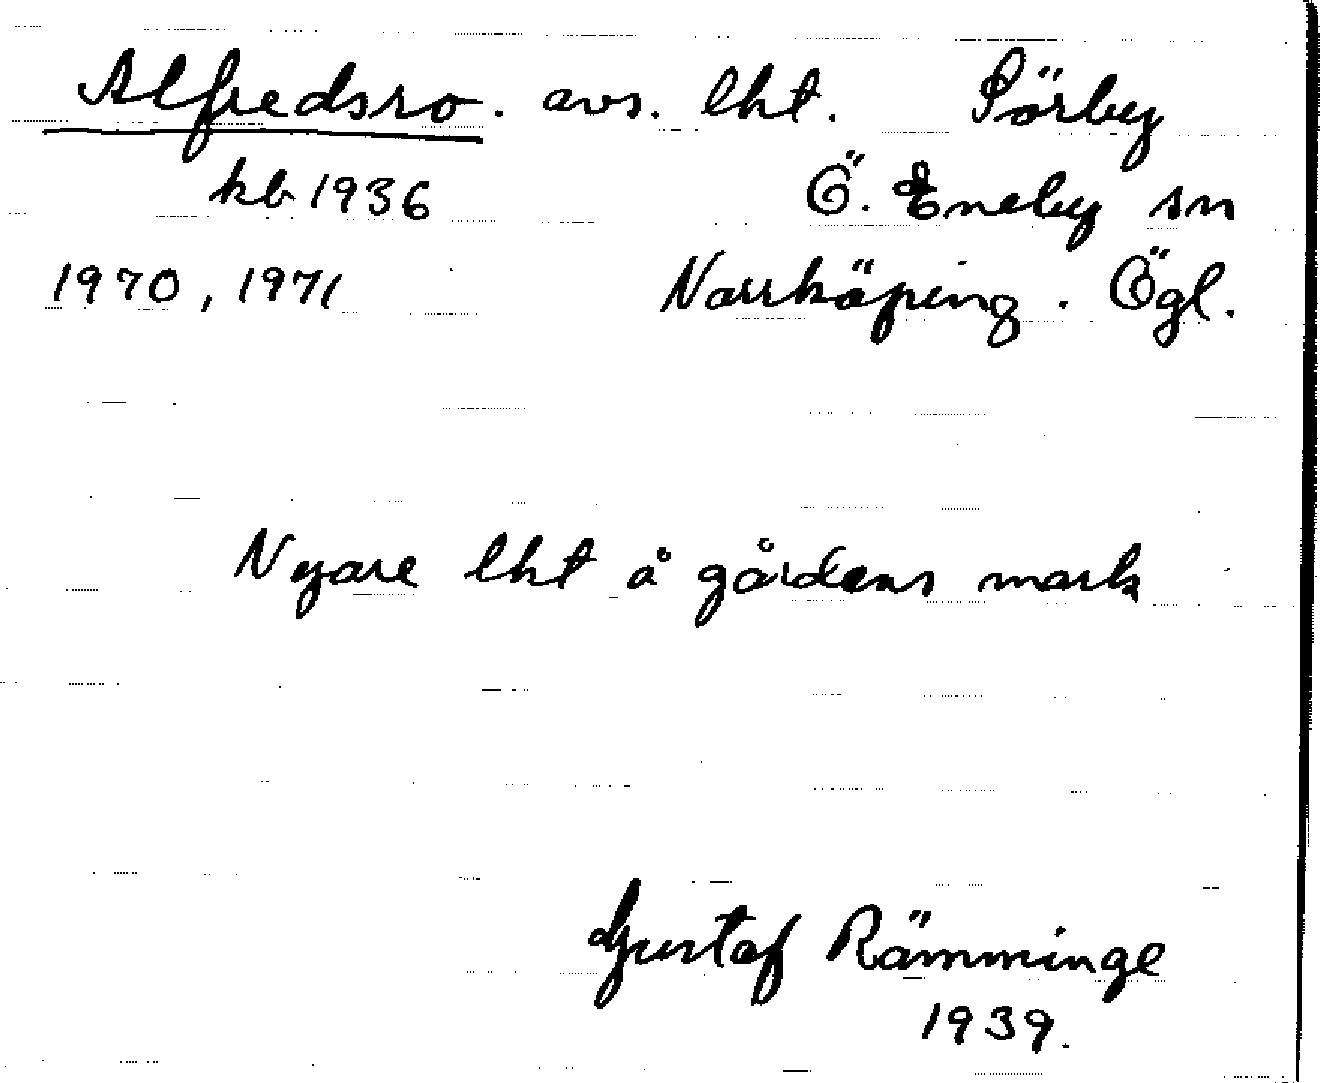 Alfredsro. avs. lht. Sörby
kb 1936 Ö. Eneby sn
1970, 1971 Norrköping. Ögl.
Nyare lht å gårdens mark
Gustaf Rämminge
1939.